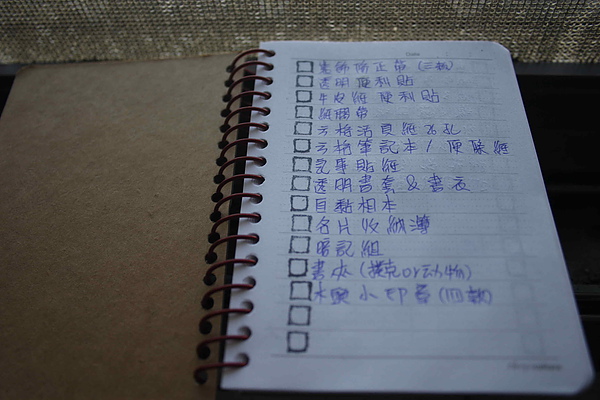 Date
裝飾修正帶 (三款)
透明便利貼
牛皮紙便利貼
紙膠帶
方格活頁紙 26孔
方格筆記本 / 原膠紙
完畢貼紙
透明書套 & 書衣
自黏相本
名片收納簿
暗記組
書夾 (撲克or动物)
水果小印章 (四款)